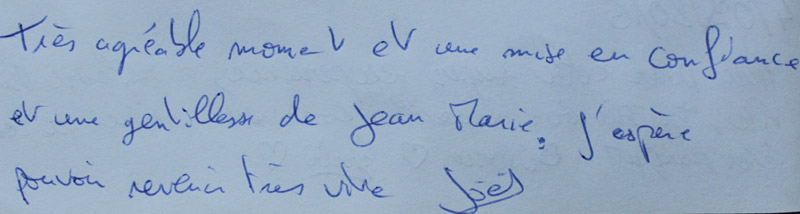 Très agréable moment et une mise en confiance
et une gentillesse de Jean Marie, j'espère
pouvoir revenir très vite Joël